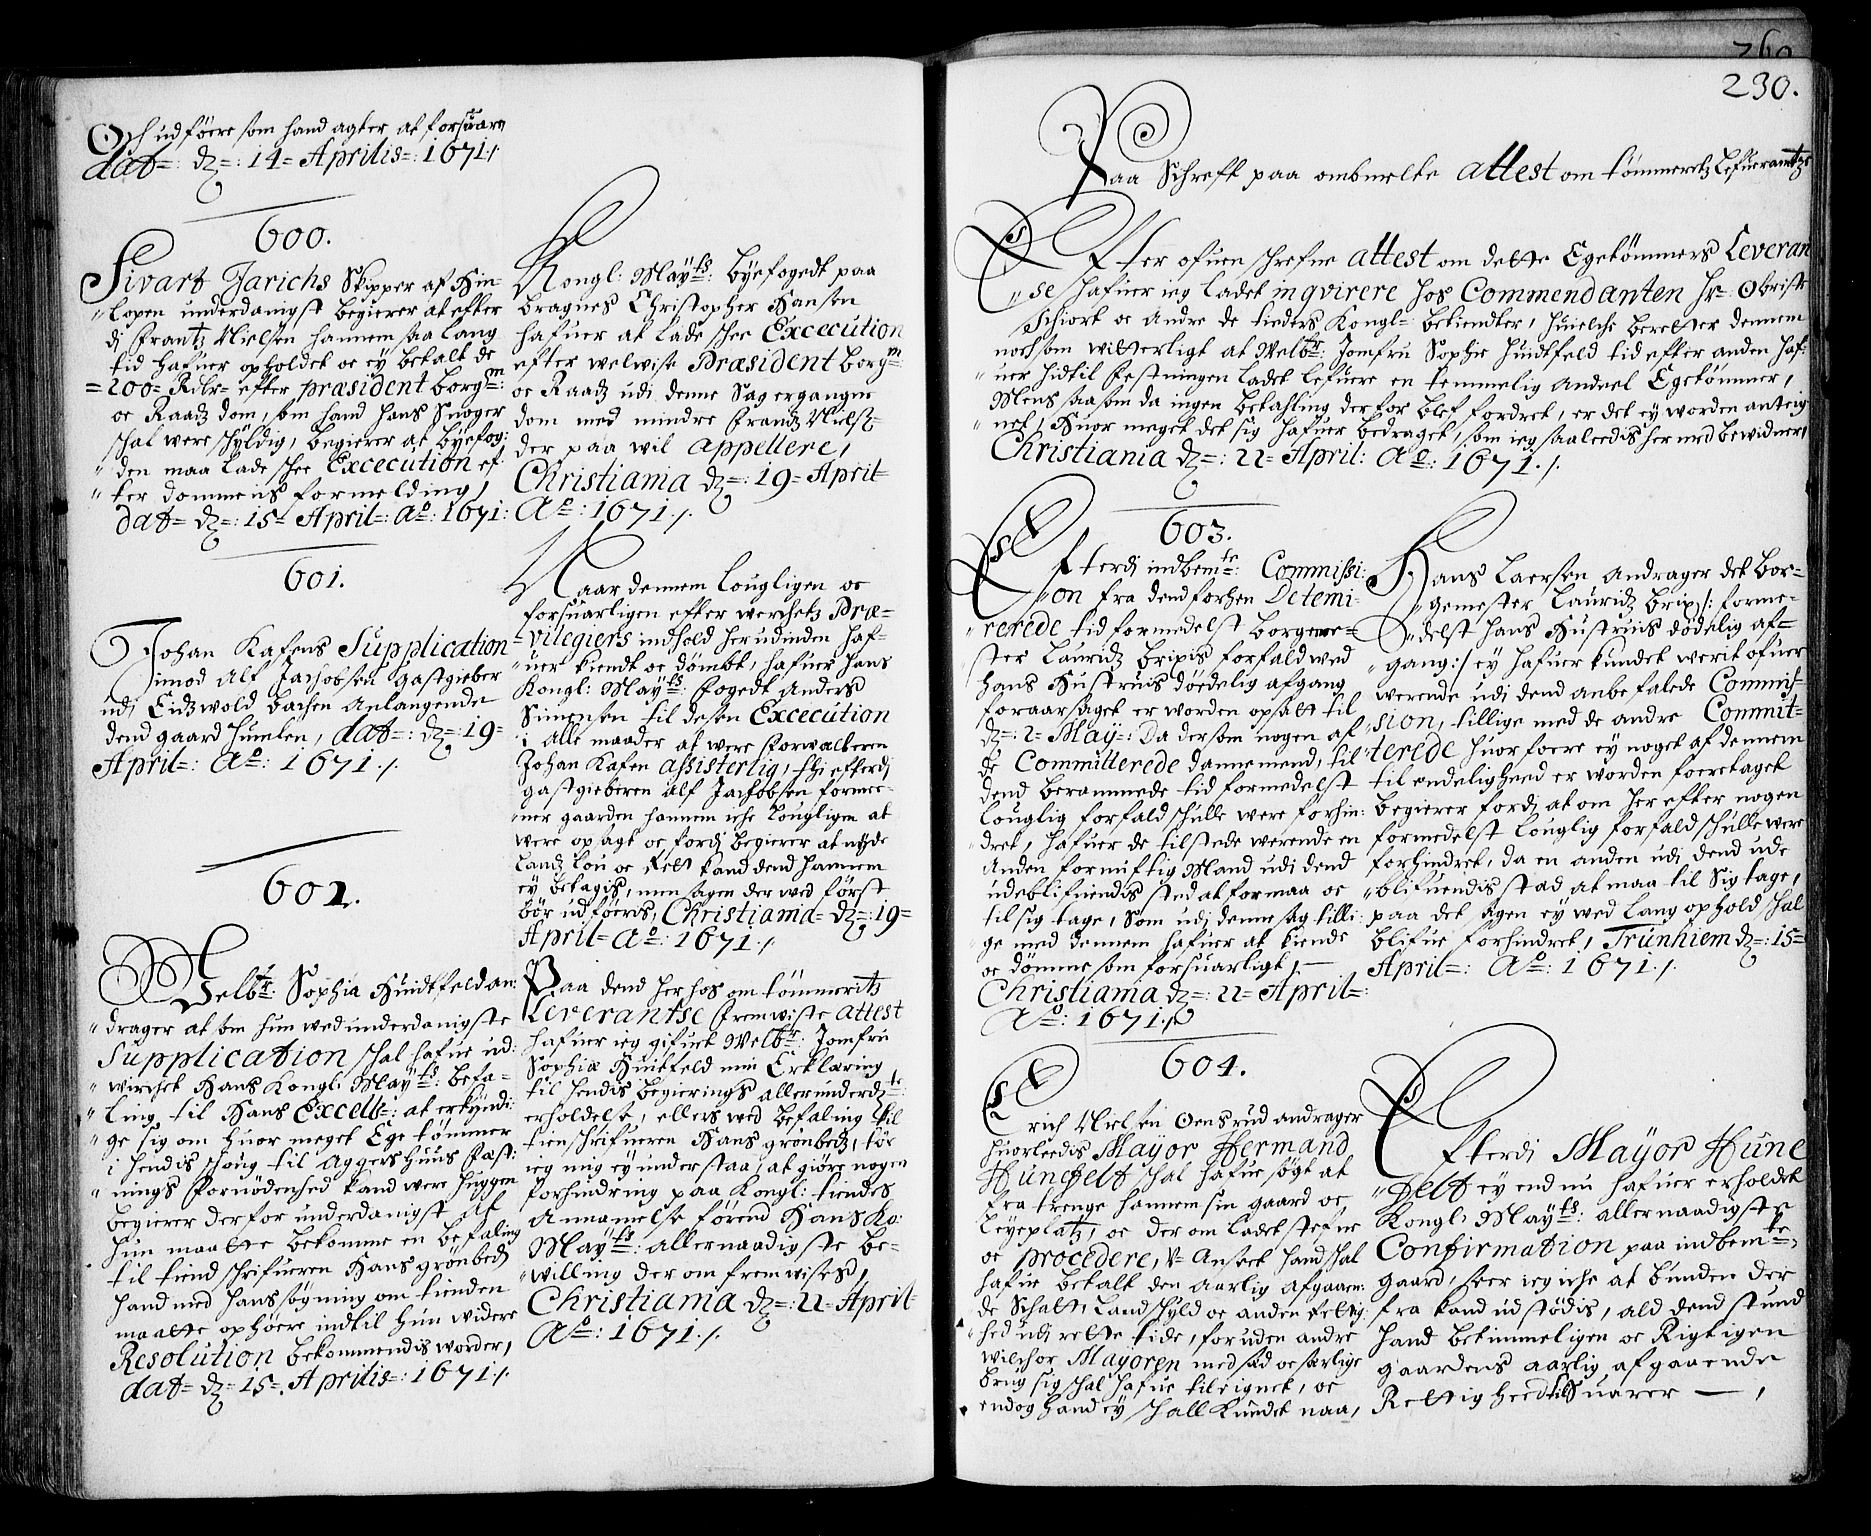 Och udføere som hand agter at forsuare
dat=: dz=: 14= Aprilis=: 1671 /.
600.
Sivart Jarichs Skipper af Hin-
"lopen underdanigst begierer at efter
di Frantz Nielsen hannem saa lang
tid hafuer opholdet oc ey betalt de
=200= Rdlr= efter præsident borgm:
oc Raadz dom, som hand hans Suoger
schal were schÿldig, begierer at bÿefog:
"den maa lade schee Excecution ef:
"ter dommens formelding,
dat= dz=: 15= April=: Ao: 1671:
Kongl: Mayts: bÿefogedt paa
bragnes Christopher Hansen
hafuer at lade schee Excecution
efter welwise Præsident borgm:
oc Raadz udi denne Sag ergangne
dom med mindre Frandtz Nielsz=
der paa wil appellere,
Christiania dz=: 19= April=
Ao=: 1671 /.
601.
Johan Kafens Supplication
imod Alf Jachobsen gastgieber
udi Eidzwold bachen anlangende
dend gaard Humlen, dat=: dz=: 19=
April=: Ao: 1671 /.
Naar dennem lougligen oc
forsuarligen efter werchetz Præ=
=vilegiers indhold her udinden haf-
"uer kiendt oc dømbt, hafuer hans
Kongl: Mayts: fogedt Anders
Simensen til desen Excecution
i alle maader at were Forwalteren
Johan Kafen assisterlig, thi efterdj
gastgieberen Alf Jachobsen formee-
"ner gaarden hannem iche lougligen at
were opsagt oc fordj begierer at nÿde
Landz Lou oc Rett kand dend hannem
ey betagis, men sagen der wed først
bør udføeris, Christiania= dz=: 19=
April= Ao: 1671 /.
602.
Welbr: Sophia Huidtfeld an:
"drager at om hun wed underdanigste
Supplication schal hafue ud:
"wirchet Hans Kongl: Mayts: befa=
"ling til Hans Excellz=: at erkyndi:
"ge sig om huor meget Ege tømmer
i hendis schoug til Aggershuus Fæst:
"nings Fornødenhed kand were huggen
begierer derfor underdanigst at
hun maatte bekomme en befaling
til tiend schrifueren Hans grønbech
hand med hans søgning om tienden
maatte ophøere indtil hun widere
Resolution bekommendis worder,
dat= dz= 15=. Aprilis=: 1671 /.
Paa dend her hos om tømmeritz
Leverantse fremwiste attest
hafuer ieg gifuet Welbr: Jomfru
Sophia Huitfeld min Erklæring
til hendis begierings allerunderdte:
erholdelse, ellers wed befaling til
tienschrifueren Hans grønbech, tør
ieg mig ey understaa, at giøre nogen
forhindring paa Kongl: tiendes
Annamelse førend Hans Ko:
Mayts: allernaadigste be=
"willing der om fremwises,
Christiania dz=: 22= April=
Ao: 1671 /.
230.
Paa Schreft paa ombmelte attest om tømmeretz Lefuerantzs
Efter ofuen schrefne attest om dette Egetømmers Leveran
"se hafuer ieg ladet inqvirere hos Commendanten Hr= Obriste
Schiort oc Andre de tieders Kongl= betiendter, huilche beretter dennem
noch som witterligt at Welbr: Jomfru Sophie Huidtfeld tid efter anden haf:
"uer hidtil Festningen ladet lefuere en temmelig andeel Egetømmer,
Mens saasom da ingen betahling derfor blef fordret, er det ey worden anteig
"net, Huor meget det sig hafuer bedraget, som ieg saaleedis her med bewidner,
Christiania dz=: 22= April: Ao: 1671. /.
603.
Efterdj indbemte: Commissi:
"on fra dend forhen Determi-
"rerede tid formedelst borgeme=
"ster Lauridz Bripis forfald wed
hans Hustruis døedelig afgang
foraarsaget er worden opsatt til
dz=: 2= May=: Da dersom nogen af
de Committerede dannemend, til
dend berammede tid formedelst
Louglig forfald schulle were forhin:
"dret, hafuer de tilstede werende en
Anden fornuftig Mand udi dend
udeblifuendis sted at formaa oc
til sig tage, Som udj denne sag tilli:
ge med dennem hafuer at kiende
oc dømme som forsuarligt, —
Christiania dz=: 22= April=:
Ao: 1671 /.
Hans Laersen andrager det bor=
"gemester Lauridz brix /: forme=
"delst hans Hustruis dødelig af=
"gang :/ ey hafuer kundet werit ofuer
werende udi dend anbefalede Commis=
sion, tillige med de andre Commit=
terede huorfoere ey noget af dennem
til endelighed er worden foeretaget
begierer fordj at om her efter nogen
formedelst Louglig forfald schulle were
forhindret, da en anden udi dend ude
"blifuendis stad at maa til Sig tage,
paa det sagen ey wed lang ophold schal
blifue forhindret, Trunhiem dz=: 15=
April=: Ao: 1671 /.
604.
Erich Nielsen Oensrud andrager
huorleedis Mayor Hermand
Hünefelt schal hafue søgt at
fra trenge hannem sin gaard oc
Leyeplatz, oc der om ladet stefne
oc procedere, U= Anseet hand schal
hafue betalt den aarlig afgaaen:
de Schatt, Landschyld oc anden rettig:
"hed udi rette tide, foruden andre
wilchor Mayoren med sæd oc særlige
brug sig schal hafue tileignet, oc
endog hand ey schall kundet naa,
Efterdi Mayor Hüne
"Felt ey endnu hafuer erholdet
Kongl: Mayts: allernaadigste
Confirmation paa indbemte:
gaard, seer ieg iche at bunden der
fra kand udstødis, ald dend stund
hand betimmeligen oc Rigtigen
gaardens aarlig afgaaende
Rettigheed til Suarer — ,